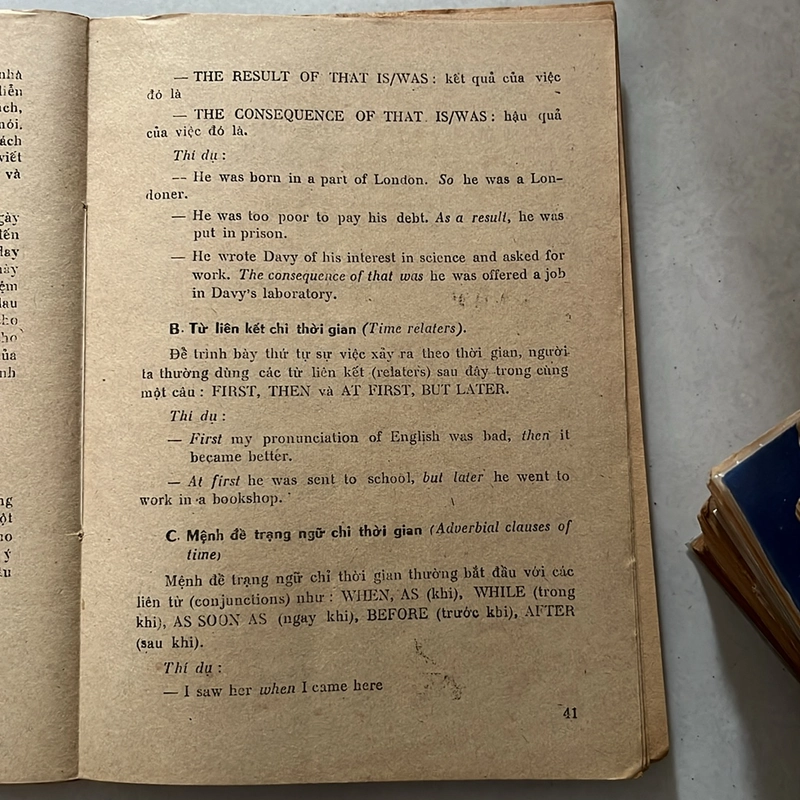 nhà
ách
viết
và
— THE RESULT OF THAT IS/WAS : kết quả của việc
đó là
— THE CONSEQUENCE OF THAT IS/WAS : hậu quả
của việc đó là.
Thí dụ :
— He was born in a part of London. So he was a Lon-
doner.
— He was too poor to pay his debt. As a result, he was
put in prison.
— He wrote Davy of his interest in science and asked for
work. The consequence of that was he was offered a job
in Davy's laboratory.
B. Từ liên kết chỉ thời gian (Time relaters).
Để trình bày thứ tự sự việc xảy ra theo thời gian, người
ta thường dùng các từ liên kết (relaters) sau đây trong cùng
một câu : FIRST, THEN và AT FIRST, BUT LATER.
Thí dụ :
— First my pronunciation of English was bad, then it
became better.
— At first he was sent to school, but later he went to
work in a bookshop.
C. Mệnh đề trạng ngữ chỉ thời gian (Adverbial clauses of
time)
Mệnh đề trạng ngữ chỉ thời gian thường bắt đầu với các
liên từ (conjunctions) như : WHEN, AS (khi), WHILE (trong
khi), AS SOON AS (ngay khi), BEFORE (trước khi), AFTER
(sau khi).
Thí dụ :
— I saw her when I came here
41